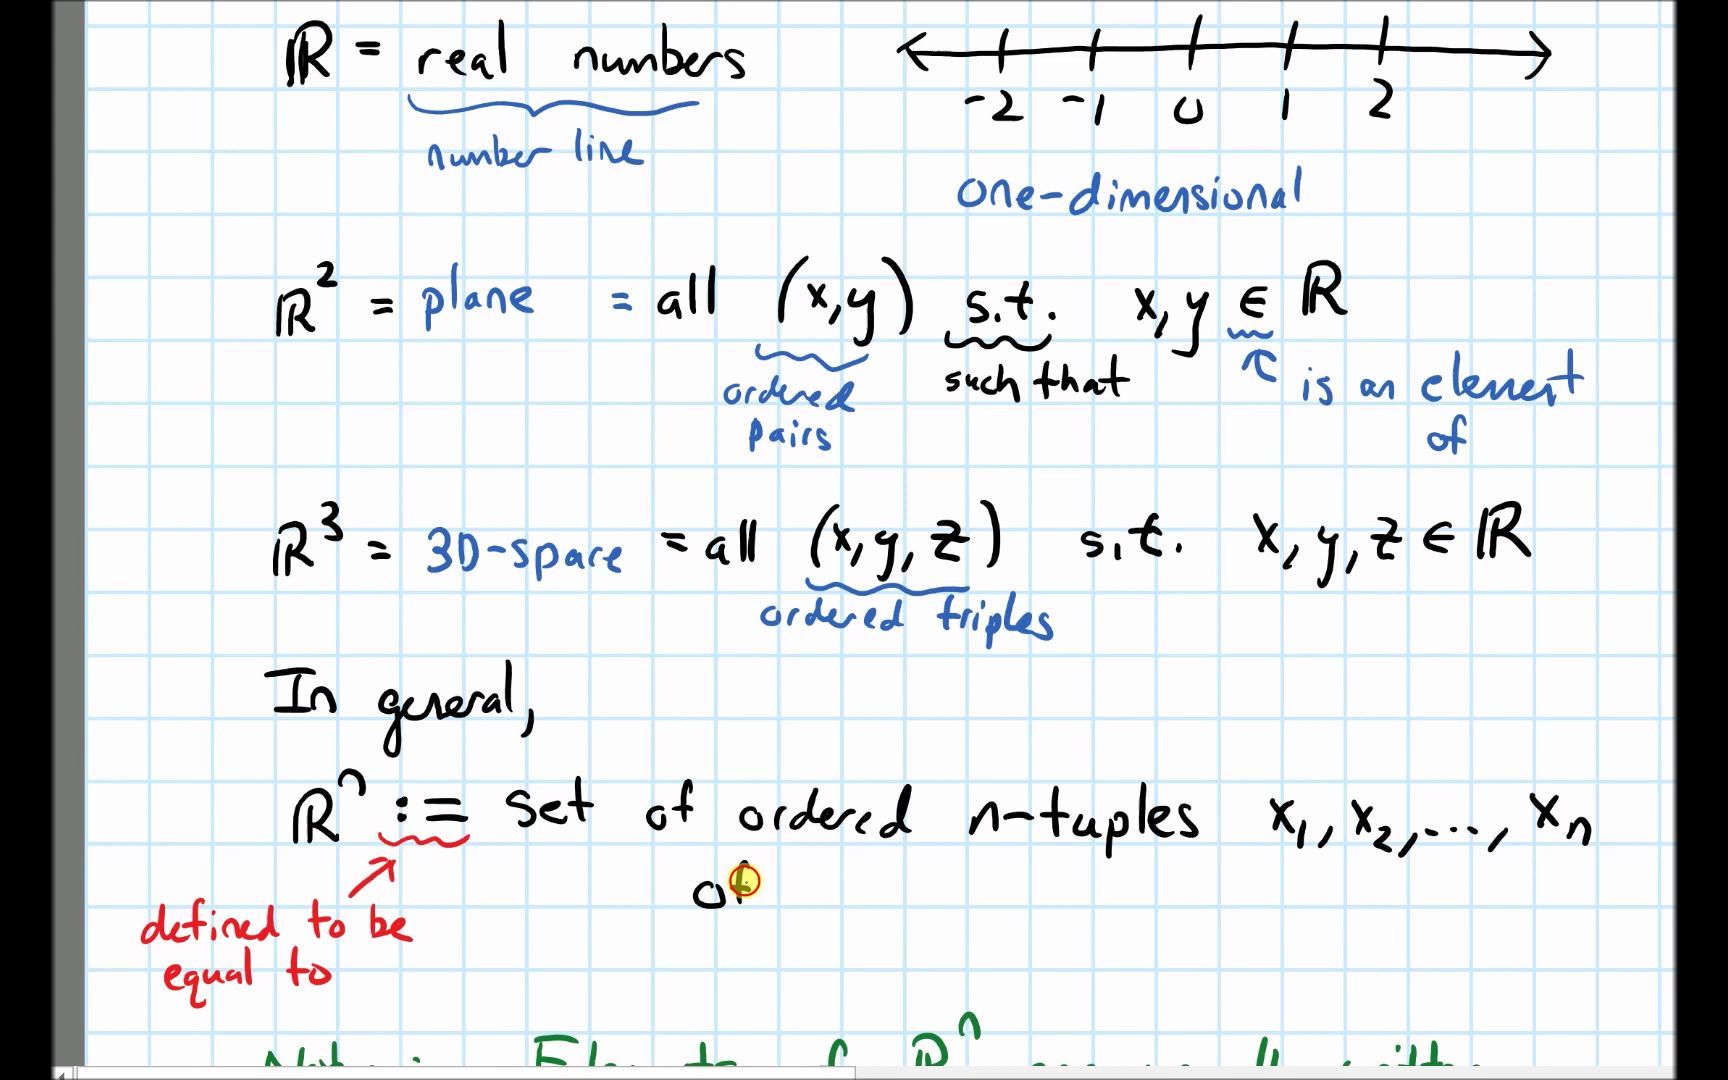 ℝ = real numbers
-2 -1 0 1 2
number line
one-dimensional
ℝ² = plane = all (x,y) s.t. x,y ∈ ℝ
ordered pairs
such that
is an element of
ℝ³ = 3D-space = all (x,y,z) s.t. x,y,z ∈ ℝ
ordered triples
In general,
ℝⁿ := set of ordered n-tuples x₁, x₂, ..., xₙ
of
defined to be
equal to
ℝⁿ